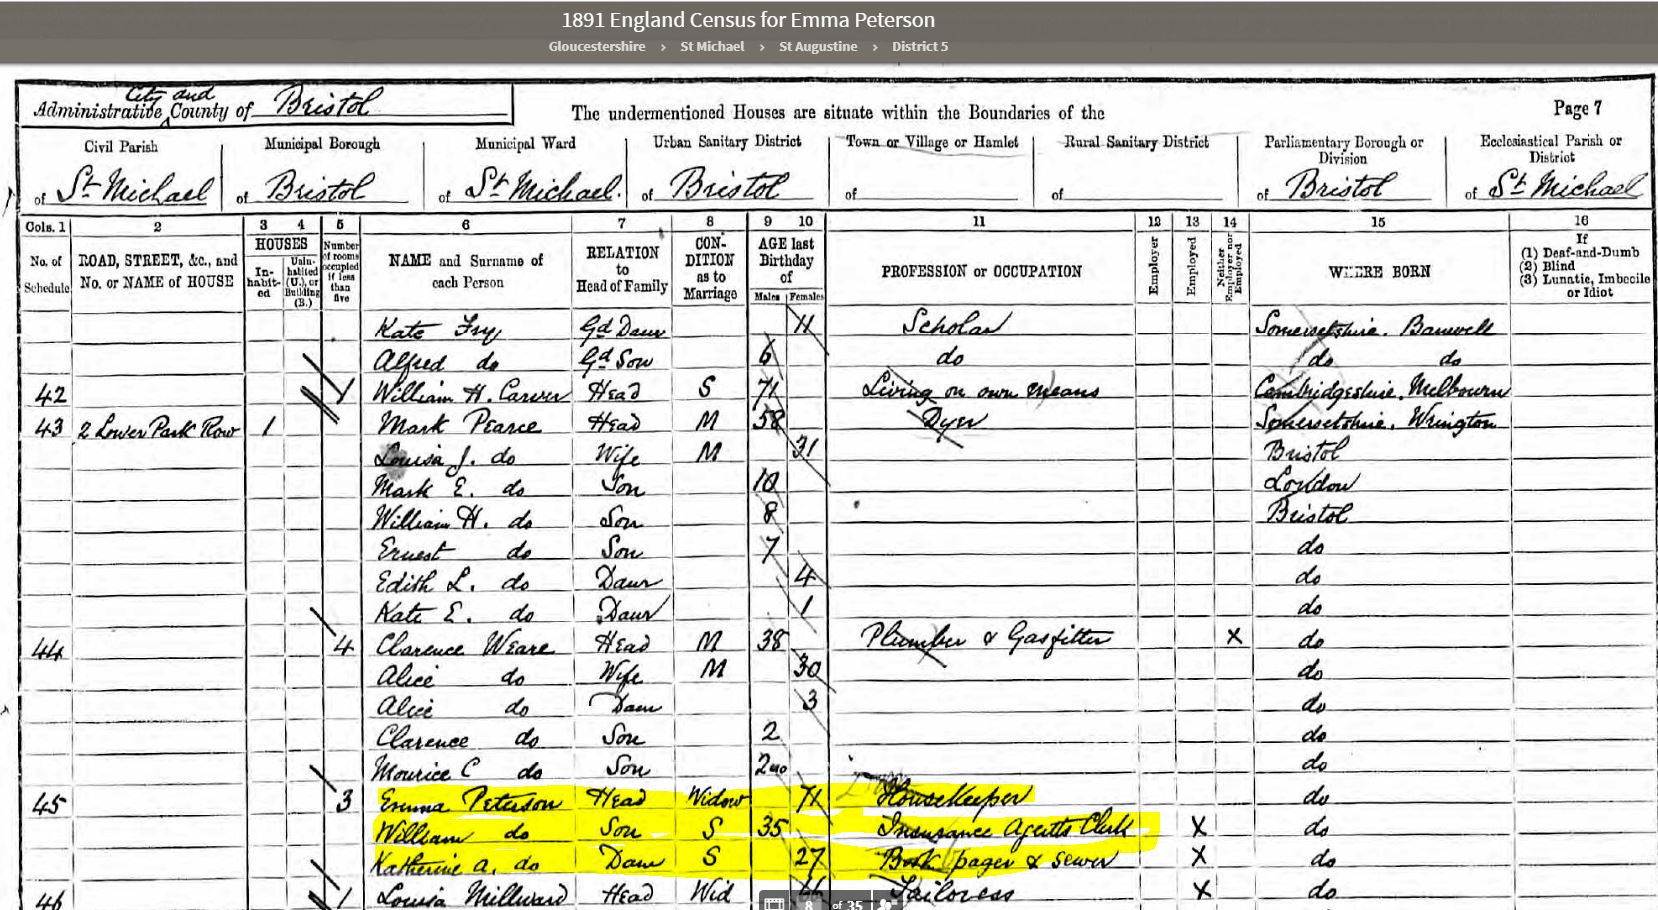 1891 England Census for Emma Peterson
Gloucestershire > St Michael > St Augustine > District 5
City and
Administrative County of Bristol
The undermentioned Houses are situate within the Boundaries of the
Page 7
Civil Parish of St Michael
Municipal Borough of Bristol
Municipal Ward of St Michael.
Urban Sanitary District of Bristol
Town or Village or Hamlet of
Rural Sanitary District of
Parliamentary Borough or Division of Bristol
Ecclesiastical Parish or District of St Michael
Cols. 1 2 3 4 5 6 7 8 9 10 11 12 13 14 15 16
No. of Schedule
ROAD, STREET, &c., and No. or NAME of HOUSE
HOUSES
Inhabited
Uninhabited (U.), or Building (B.)
Number of rooms occupied if less than five
NAME and Surname of each Person
RELATION to Head of Family
CONDITION as to Marriage
AGE last Birthday of
Males Females
PROFESSION or OCCUPATION
Employer
Employed
Neither Employer nor Employed
WHERE BORN
If
(1) Deaf-and-Dumb
(2) Blind
(3) Lunatic, Imbecile or Idiot
Kate Fry Gd Daur 11 Scholar Somersetshire. Banwell
Alfred do Gd Son 6 do do do
42 1 William H. Carver Head S 71 Living on own means Cambridgeshire. Melbourn
43 2 Lower Park Row 1 Mark Pearce Head M 58 Dyer Somersetshire. Wrington
Louisa J. do Wife M 31 Bristol
Mark E. do Son 10 London
William H. do Son 8 Bristol
Ernest do Son 7 do
Edith L. do Daur 4 do
Kate E. do Daur 1 do
44 4 Clarence Weare Head M 38 Plumber & Gasfitter X do
Alice do Wife M 30 do
Alice do Daur 3 do
Clarence do Son 2 do
Mourice C do Son 2mo do
45 3 Emma Peterson Head Widow 71 Housekeeper do
William do Son S 35 Insurance Agents Clerk X do
Katherine A. do Daur S 27 Book pager & sewer X do
46 1 Louisa Millward Head Wid Tailoress X do
8 of 35